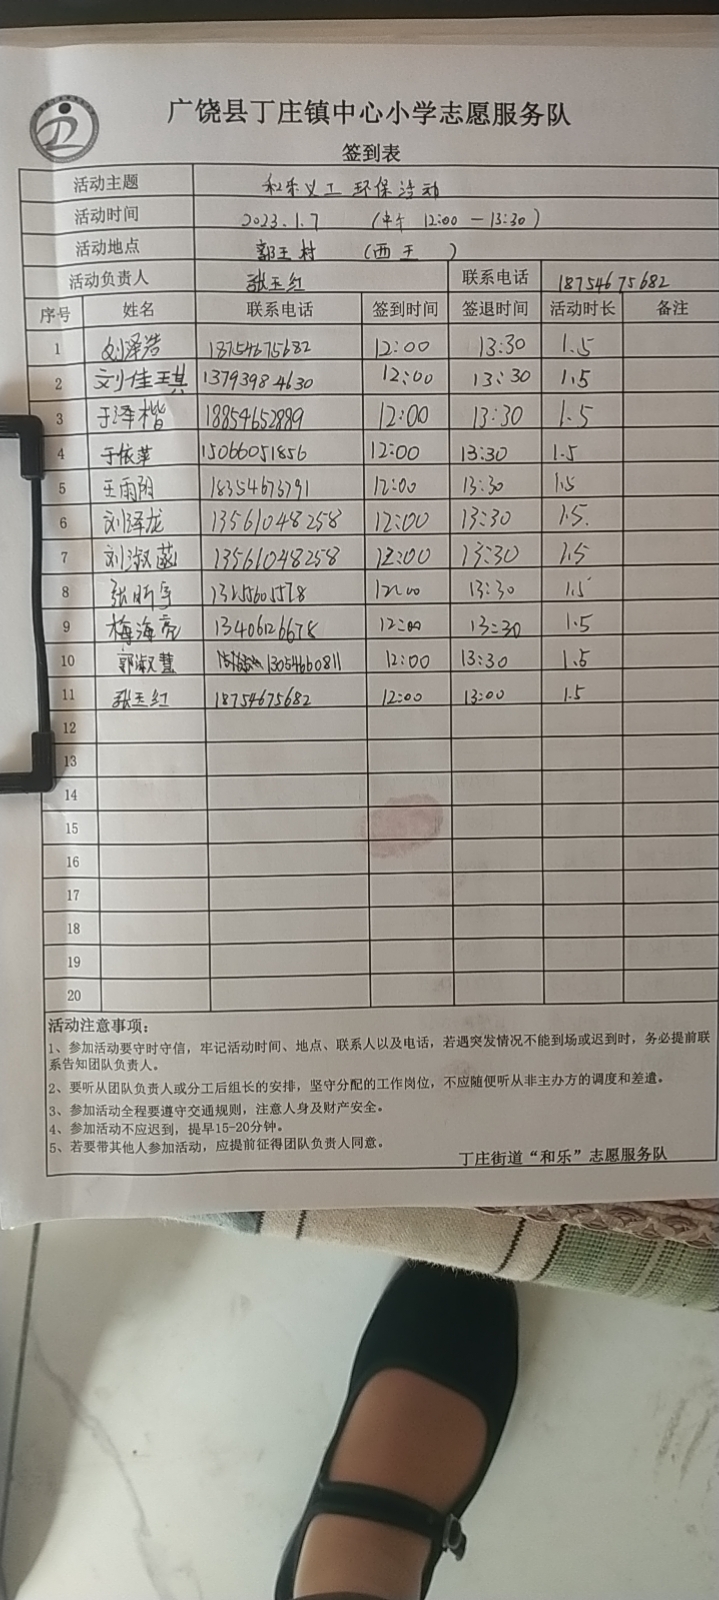 广饶县丁庄镇中心小学志愿服务队
签到表
活动主题 和乐义工 环保活动
活动时间 2023.1.7 (中午 12:00 — 13:30)
活动地点 郭王村 (西王)
活动负责人 张玉红 联系电话 18754675682
序号 姓名 联系电话 签到时间 签退时间 活动时长 备注
1 刘泽浩 18754675682 12:00 13:30 1.5
2 刘佳琪 13793984630 12:00 13:30 1.5
3 于泽楷 18854652889 12:00 13:30 1.5
4 于依苹 15066051856 12:00 13:30 1.5
5 王雨阳 18354673791 12:00 13:30 1.5
6 刘泽龙 13561048258 12:00 13:30 1.5
7 刘淑菡 13561048258 12:00 13:30 1.5
8 张昕宇 12:00 13:30 1.5
9 梅海亮 13406126678 12:00 13:30 1.5
10 郭淑慧 13054660811 12:00 13:30 1.5
11 张玉红 18754675682 12:00 13:00 1.5
12
13
14
15
16
17
18
19
20
活动注意事项：
1、参加活动要守时守信，牢记活动时间、地点、联系人以及电话，若遇突发情况不能到场或迟到时，务必提前联
系告知团队负责人。
2、要听从团队负责人或分工后组长的安排，坚守分配的工作岗位，不应随便听从非主办方的调度和差遣。
3、参加活动全程要遵守交通规则，注意人身及财产安全。
4、参加活动不应迟到，提早15-20分钟。
5、若要带其他人参加活动，应提前征得团队负责人同意。
丁庄街道“和乐”志愿服务队